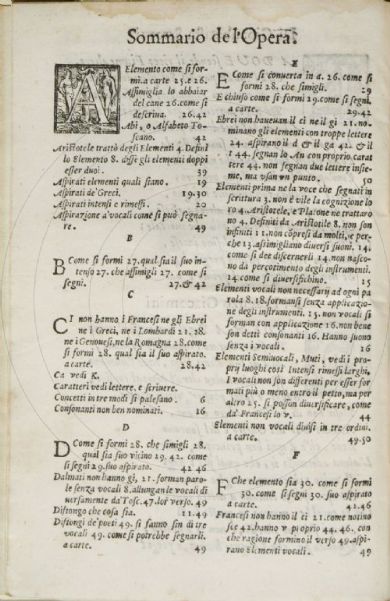 Sommario de l'Opera.
A
Elemento come si for-
mi. a carte 25. e 26.
Assimiglia lo abbaiar
del cane 26. come si
descriua. 26.42
Abi, o Alfabeto To-
scano. 42
Aristotele trattò degli Elementi 4. Definì
lo Elemento 8. disse gli elementi doppi
esser duoi. 39
Aspirati elementi quali siano. 19
Aspirati de'Greci. 19.30
Aspirati intensi e rimessi. 20
Aspirazione a'vocali come si può segna-
re. 49
B
B Come si formi 27. qual sia il suo in-
tenso 27. che assimigli 27. come si
segni. 27.& 42
C
Ci non hanno i Francesi ne gli Ebrei
ne i Greci, ne i Lombardi 21.28.
ne i Genouesi, ne la Romagna 28. come
si formi 28. qual sia il suo aspirato.
a carte. 28.42
Ca vedi K.
Caratteri vedi lettere. e scriuere.
Concetti in tre modi si palesano. 6
Consonanti non ben nominati. 16
D
D Come si formi 28. che simigli 28.
qual sia suo vicino 29. 42. come
si segni 29. suo aspirato. 42 46
Dalmati non hanno gi, 21. forman paro-
le senza vocali 8. allungan le vocali di
uersamente da'Tosc. 47. lor verso. 49
Diftongo che cosa sia. 11.49
Diftongi de'poeti 49. si fanno sin di tre
vocali 49. come si potrebbe segnarli.
a carte. 49
E
E Come si conuerta in a. 26. come si
formi 28. che simigli. 29
E chiuso come si formi 29. come si segni.
a carte. 29.42
Ebrei non haueuan il ci ne il gi 21. no-
minano gli elementi con troppe lettere
24. aspirano il d & il g a 42. & il
t 44. segnan lo An con proprio carat
tere 44. non segnan due lettere insie-
me, ma vsan vn punto. 50
Elementi prima ne la voce che segnati in
scrittura 3. non è vile la cognizione lo
ro 4. Aristotele, e Platone ne trattaro
no 4. Definiti da Aristotile 8. non son
infiniti 11. non cōpresi da molti, e per-
che 13. assimigliano diuersi suoni. 14.
come si dee discernerli 14. non nasco-
no da percotimento degli instrumenti.
14. come si diuersifichino. 15
Elementi vocali non necessarij ad ogni pa
rola 8. 18. formansi senza applicazione
degli instrumenti. 15. non vocali si
forman con applicazione 16. non bene
son detti consonanti 16. Hanno suono
senza i vocali. 16
Elementi Semiuocali, Muti, vedi i pro-
prij luoghi così Intensi rimessi larghi,
I vocali non son differenti per esser for
mati più o meno entro il petto, ma per
altro 25. si posson diuersificare, come
da' Francesi lo v. 44
Elementi non vocali diuisi in tre ordini.
a carte. 49.50
F
F Che elemento sia 30. come si formi
30. come si segni 30. suo aspirato
a carte. 42.46
Francesi non hanno il ci 21. come notino
sic 42. hanno v proprio 44.46. con
che ragione formino il verso 49. aspi-
rano Elementi vocali. 49